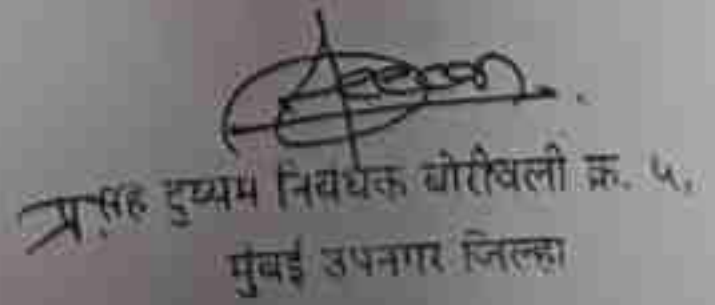 प्र.सह दुय्यम निबंधक बोरीवली क्र. ५,
मुंबई उपनगर जिल्हा